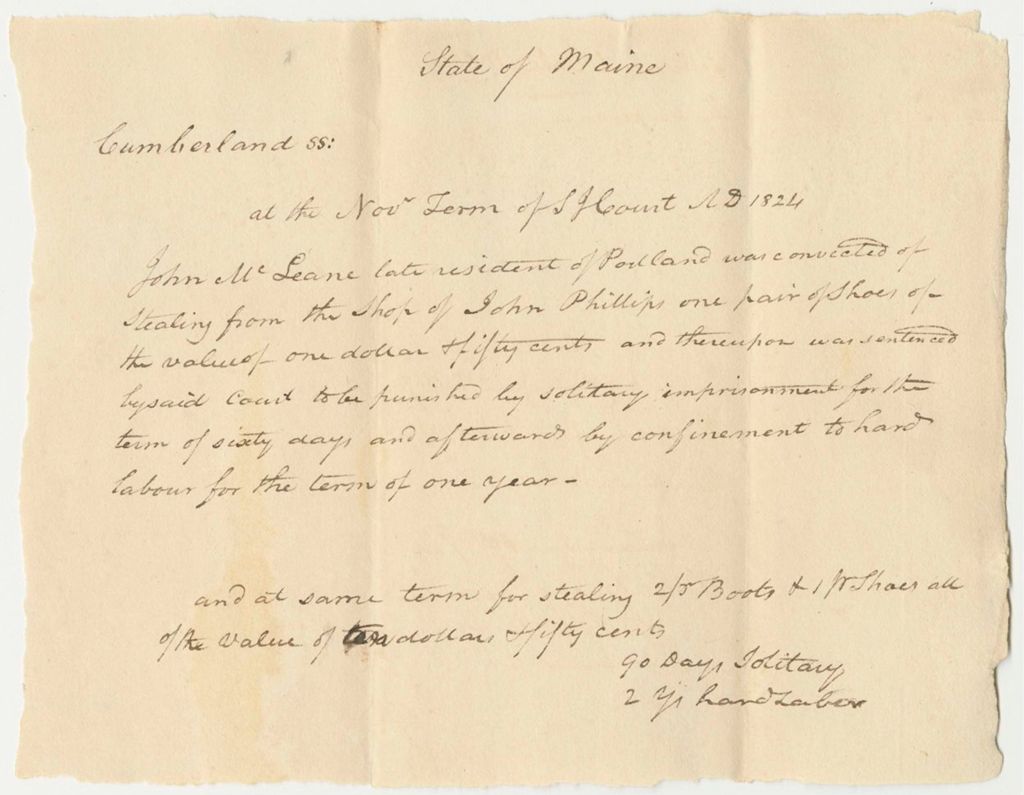 State of Maine
Cumberland ss:
at the Novr Term of S J Court AD 1824
John Mc Leane late resident of Portland was convicted of
stealing from the Shop of John Phillips one pair of Shoes of
the value of one dollar & fifty cents and thereupon was sentenced
by said Court to be punished by solitary imprisonment for the
term of sixty days and afterwards by confinement to hard
labour for the term of one year -
and at same term for stealing 2/pr Boots & 1/pr Shoes all
of the value of ten dollars & fifty cents
90 Days Solitary
2 Yrs hard Labor